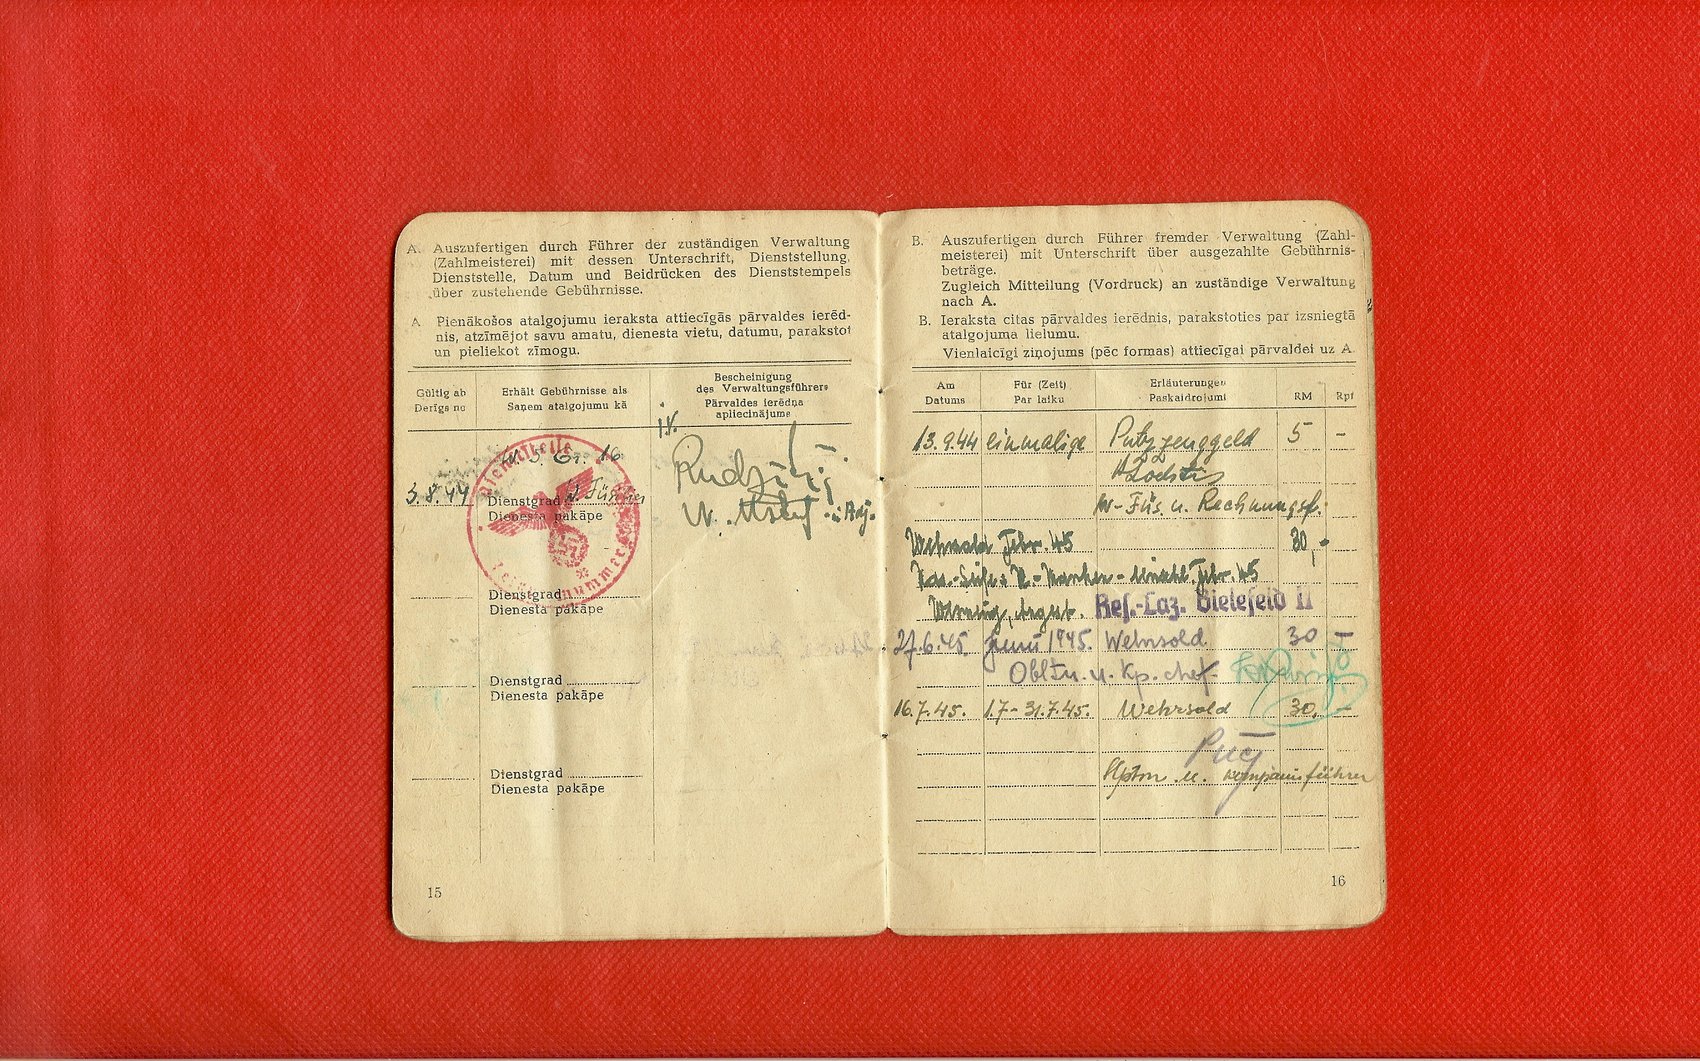 A. Auszufertigen durch Führer der zuständigen Verwaltung
(Zahlmeisterei) mit dessen Unterschrift, Dienststellung,
Dienststelle, Datum und Beidrücken des Dienststempels
über zustehende Gebührnisse.
A Pienākošos atalgojumu ieraksta attiecīgās pārvaldes ierēd-
nis, atzīmējot savu amatu, dienesta vietu, datumu, parakstot
un pieliekot zīmogu.
Gültig ab
Derīgs no
Erhält Gebührnisse als
Saņem atalgojumu kā
Bescheinigung
des Verwaltungsführers
Pārvaldes ierēdņa
apliecinājums
3.8.44
16
Dienststelle
Dienstgrad
Dienesta pakāpe
Dienstgrad
Dienesta pakāpe
Dienstgrad
Dienesta pakāpe
Dienstgrad
Dienesta pakāpe
15
B. Auszufertigen durch Führer fremder Verwaltung (Zahl-
meisterei) mit Unterschrift über ausgezahlte Gebührnis-
beträge.
Zugleich Mitteilung (Vordruck) an zuständige Verwaltung
nach A.
B. Ieraksta citas pārvaldes ierēdnis, parakstoties par izsniegtā
atalgojuma lielumu.
Vienlaicīgi ziņojums (pēc formas) attiecīgai pārvaldei uz A.
Am
Datums
Für (Zeit)
Par laiku
Erläuterungen
Paskaidrojumi
RM
Rpf
13.9.44 einmalige Putzzeuggeld 5 -
W-Füs. u. Rechnungsf.
Wehrsold Febr. 45 30,-
Febr. 45
Res.-Laz. Bielefeld II
27.6.45. Juni 1945. Wehrsold 30 -
Obltn. u. Kp. chef.
16.7.45. 1.7-31.7.45. Wehrsold 30, -
Hptm. u. Kompanieführer
16